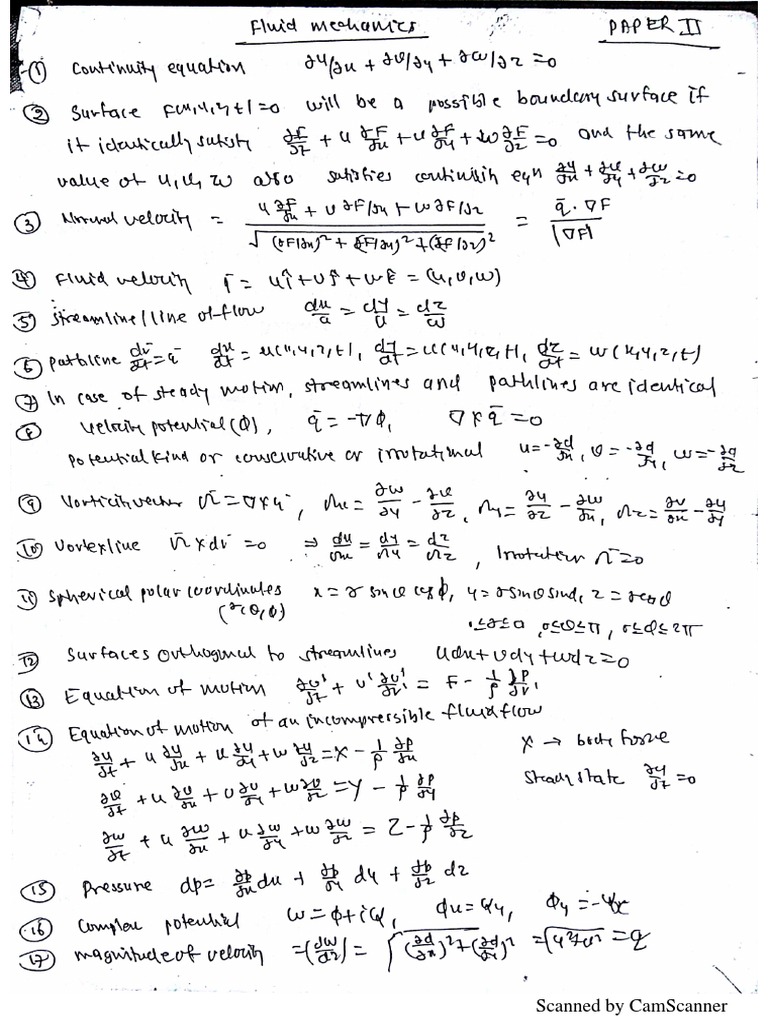 Fluid mechanics PAPER II
① Continuity equation ∂u/∂x + ∂v/∂y + ∂w/∂z = 0
② Surface F(x,y,z,t) = 0 will be a possible boundary surface if
it identically satisfy ∂F/∂t + u ∂F/∂x + v ∂F/∂y + w ∂F/∂z = 0 and the same
value of u, v, w also satisfies continuity eqn ∂u/∂x + ∂v/∂y + ∂w/∂z = 0
③ Normal velocity = (u ∂F/∂x + v ∂F/∂y + w ∂F/∂z) / √((∂F/∂x)² + (∂F/∂y)² + (∂F/∂z)²) = q̄·∇F / |∇F|
④ Fluid velocity q̄ = uî + vĵ + wk̂ = (u, v, w)
⑤ Streamline/line of flow dx/u = dy/v = dz/w
⑥ Pathline dr̄/dt = q̄ dx/dt = u(x,y,z,t), dy/dt = v(x,y,z,t), dz/dt = w(x,y,z,t)
⑦ In case of steady motion, streamlines and pathlines are identical
⑧ Velocity potential (ϕ), q̄ = -∇ϕ, ∇×q̄ = 0
Potential kind or conservative or irrotational u = -∂ϕ/∂x, v = -∂ϕ/∂y, w = -∂ϕ/∂z
⑨ Vorticity vector Ω̄ = ∇×q̄, Ωx = ∂w/∂y - ∂v/∂z, Ωy = ∂u/∂z - ∂w/∂x, Ωz = ∂v/∂x - ∂u/∂y
⑩ Vortexline Ω̄×dr̄ = 0 ⇒ dx/Ωx = dy/Ωy = dz/Ωz, Irrotation Ω̄ = 0
⑪ Spherical polar coordinates x = r sinθ cosϕ, y = r sinθ sinϕ, z = r cosθ
(r,θ,ϕ) ≤ r ≤ a, 0 ≤ θ ≤ π, 0 ≤ ϕ ≤ 2π
⑫ Surfaces orthogonal to streamlines udx + vdy + wdz = 0
⑬ Equation of motion ∂v'/∂t + v' ∂v'/∂r' = F - 1/ρ ∂P/∂r'
⑭ Equation of motion of an incompressible fluid flow
∂u/∂t + u ∂u/∂x + v ∂u/∂y + w ∂u/∂z = X - 1/ρ ∂p/∂x X → body force
∂v/∂t + u ∂v/∂x + v ∂v/∂y + w ∂v/∂z = Y - 1/ρ ∂p/∂y Steady state ∂u/∂t = 0
∂w/∂t + u ∂w/∂x + v ∂w/∂y + w ∂w/∂z = Z - 1/ρ ∂p/∂z
⑮ Pressure dp = ∂p/∂x dx + ∂p/∂y dy + ∂p/∂z dz
⑯ Complex potential w = ϕ + iψ, ϕx = ψy, ϕy = -ψx
⑰ magnitude of velocity = (dw/dz) = √((∂ϕ/∂x)² + (∂ϕ/∂y)²) = √(u² + v²) = q
Scanned by CamScanner